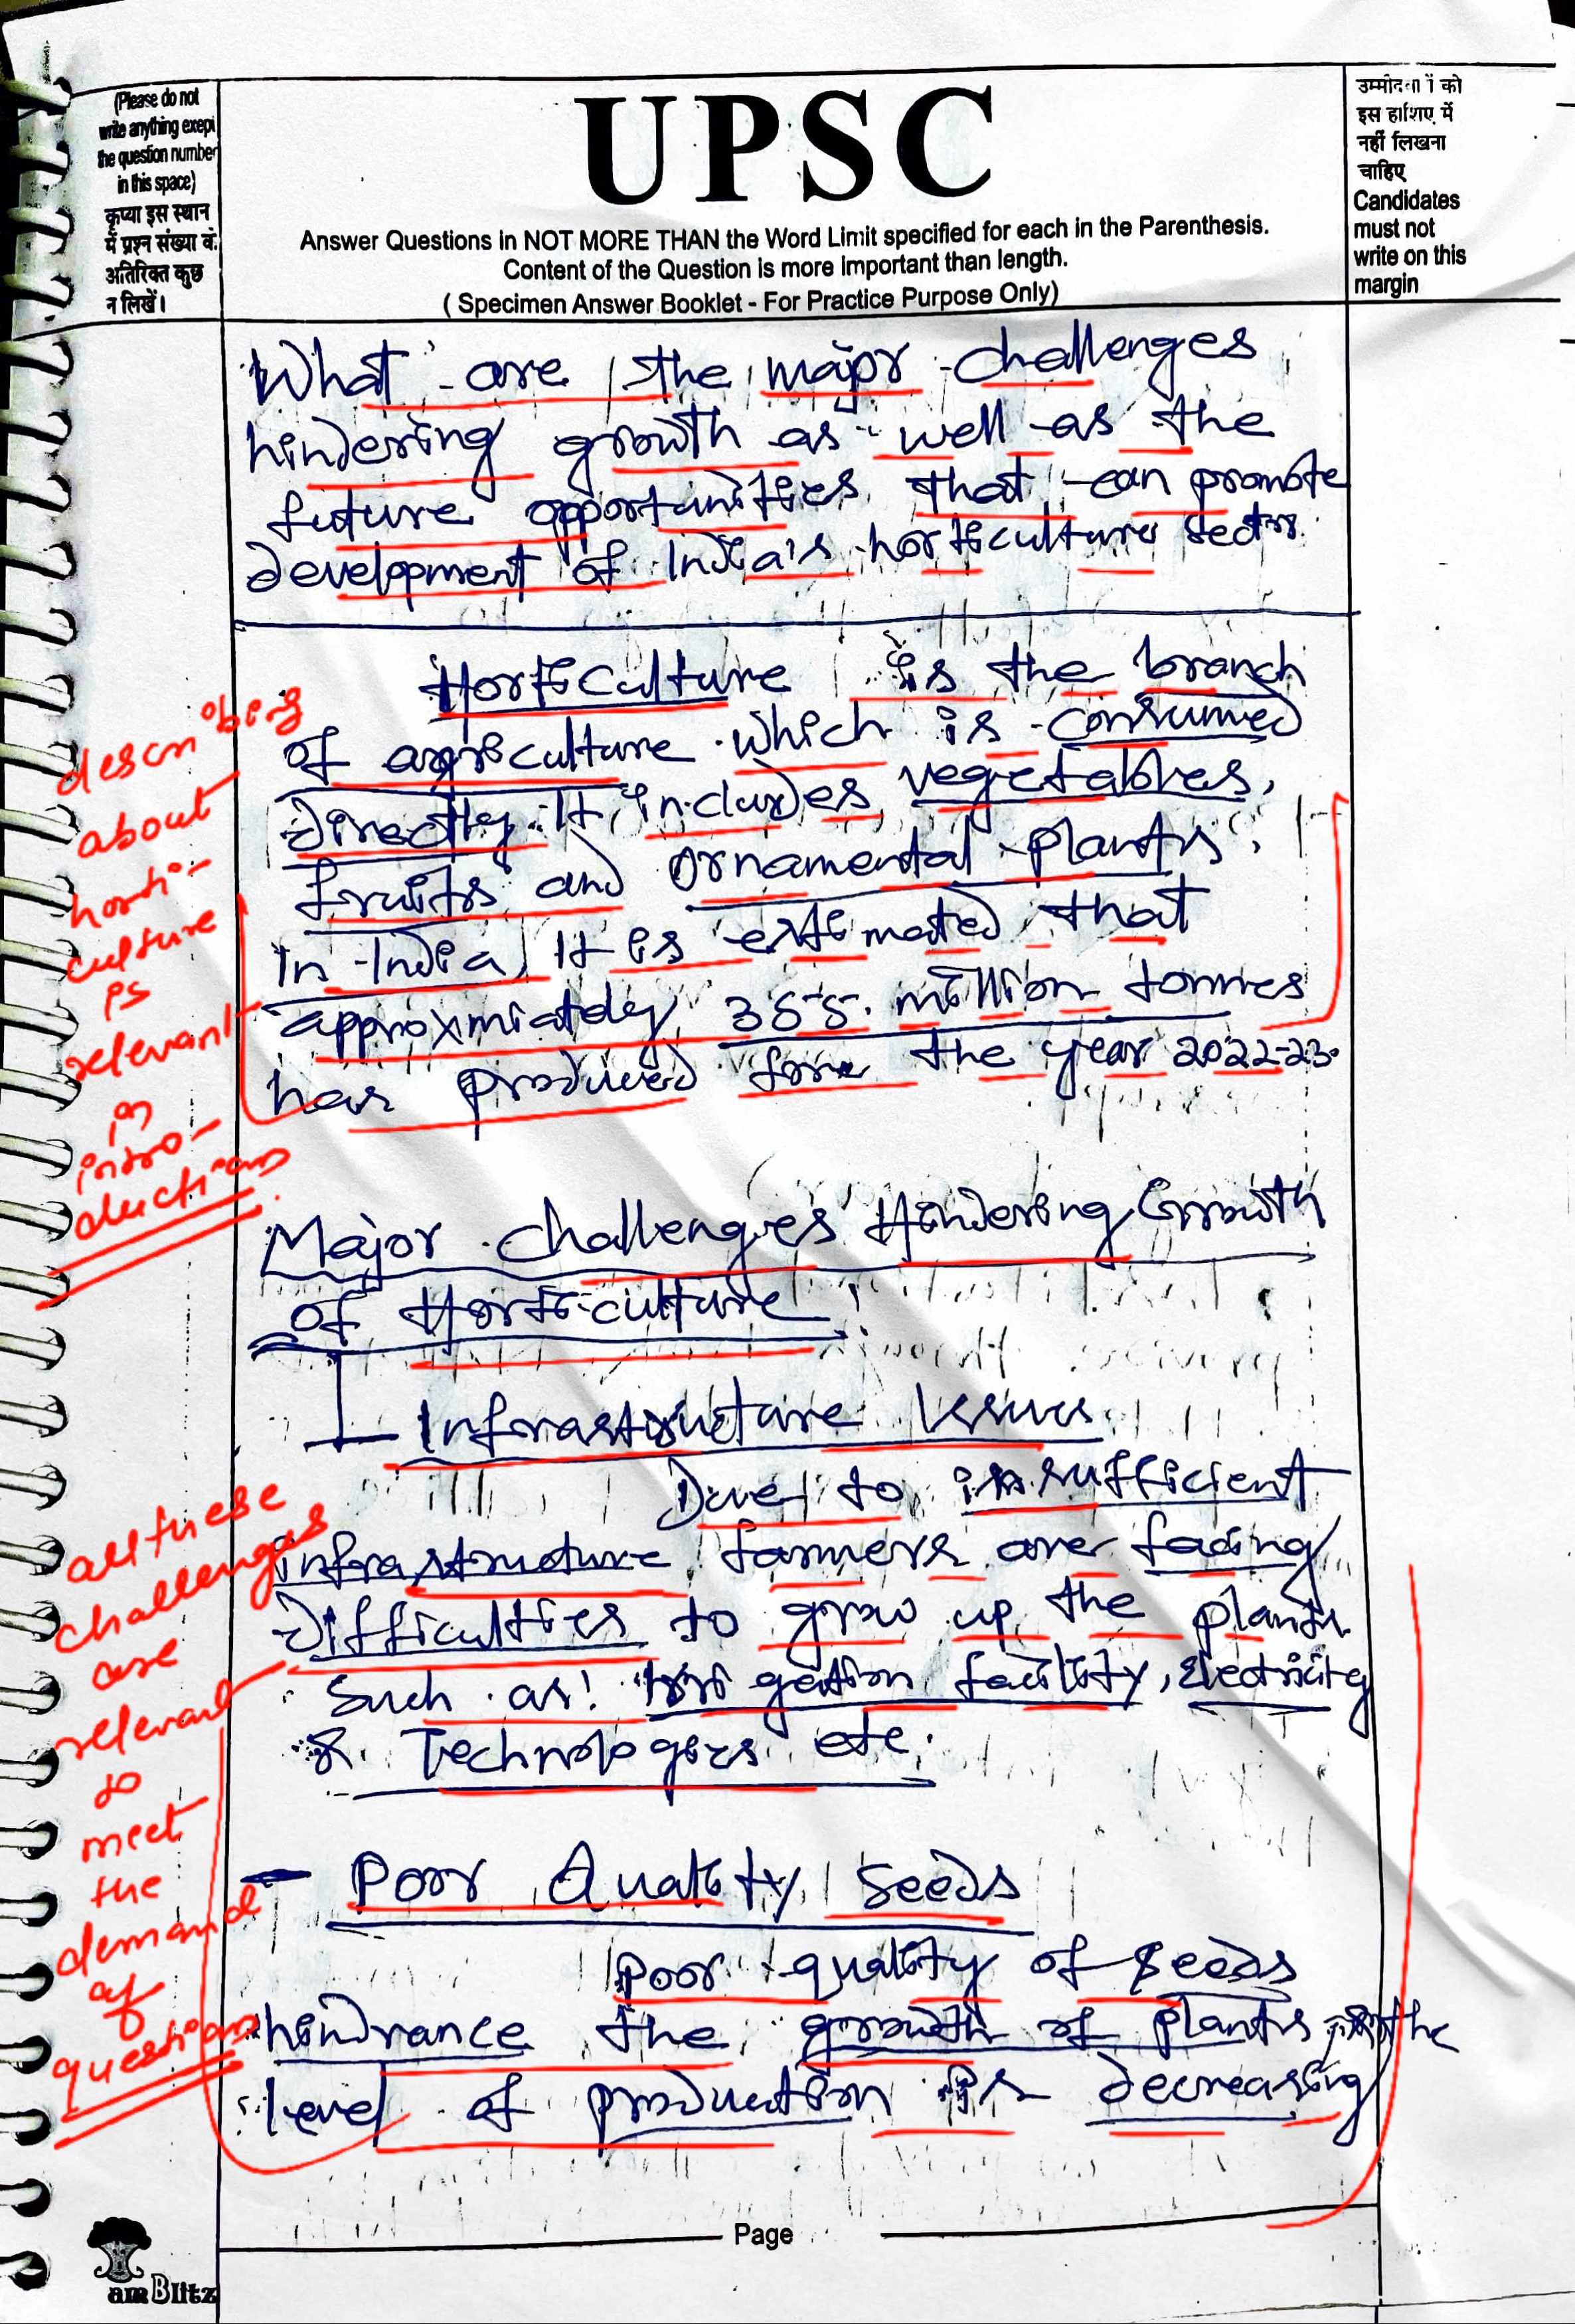 (Please do not
write anything exept
the question number
in this space)
कृप्या इस स्थान
में प्रश्न संख्या के
अतिरिक्त कुछ
न लिखें।
UPSC
Answer Questions in NOT MORE THAN the Word Limit specified for each in the Parenthesis.
Content of the Question is more important than length.
( Specimen Answer Booklet - For Practice Purpose Only)
उम्मीदवारों को
इस हाशिए में
नहीं लिखना
चाहिए
Candidates
must not
write on this
margin
What are the major challenges
hindering growth as well as the
future opportunities that can promote
development of India's horticulture sector.
Horticulture is the branch
of agriculture which is consumed
directly. It includes vegetables,
fruits and ornamental plants.
In India, It is estimated that
approximately 355 million tonnes
has produced for the year 2022-23.
describing
about
horti-
culture
is
relevant
in
intro-
duction
Major challenges Hindering Growth
of Horticulture
Infrastructure Issues
Due to insufficient
infrastructure farmers are facing
difficulties to grow up the plants
such as: irrigation facility, Electricity
& Technologies etc.
all these
challenges
are
relevant
to
meet
the
demand
of
question
- Poor Quality Seeds
Poor quality of seeds
hindrance the growth of plants, the
level of production is decreasing
Page
am Blitz